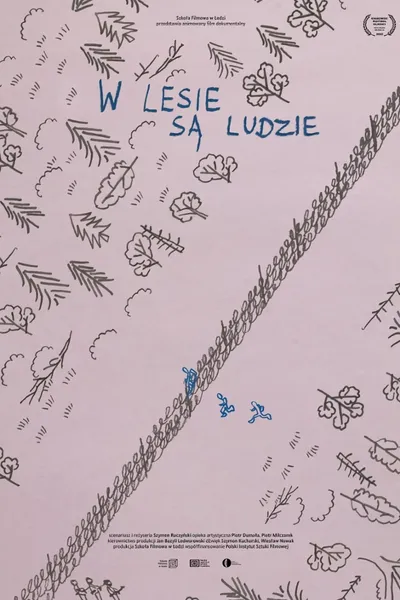 Szkoła Filmowa w Łodzi
przedstawia animowany film dokumentalny
W LESIE
SĄ LUDZIE
scenariusz i reżyseria Szymon Ruczyński opieka artystyczna Piotr Dumała, Piotr Milczarek
kierownictwo produkcji Jan Bazyli Ledworowski dźwięk Szymon Kucharski, Wiesław Nowak
produkcja Szkoła Filmowa w Łodzi współfinansowanie Polski Instytut Sztuki Filmowej